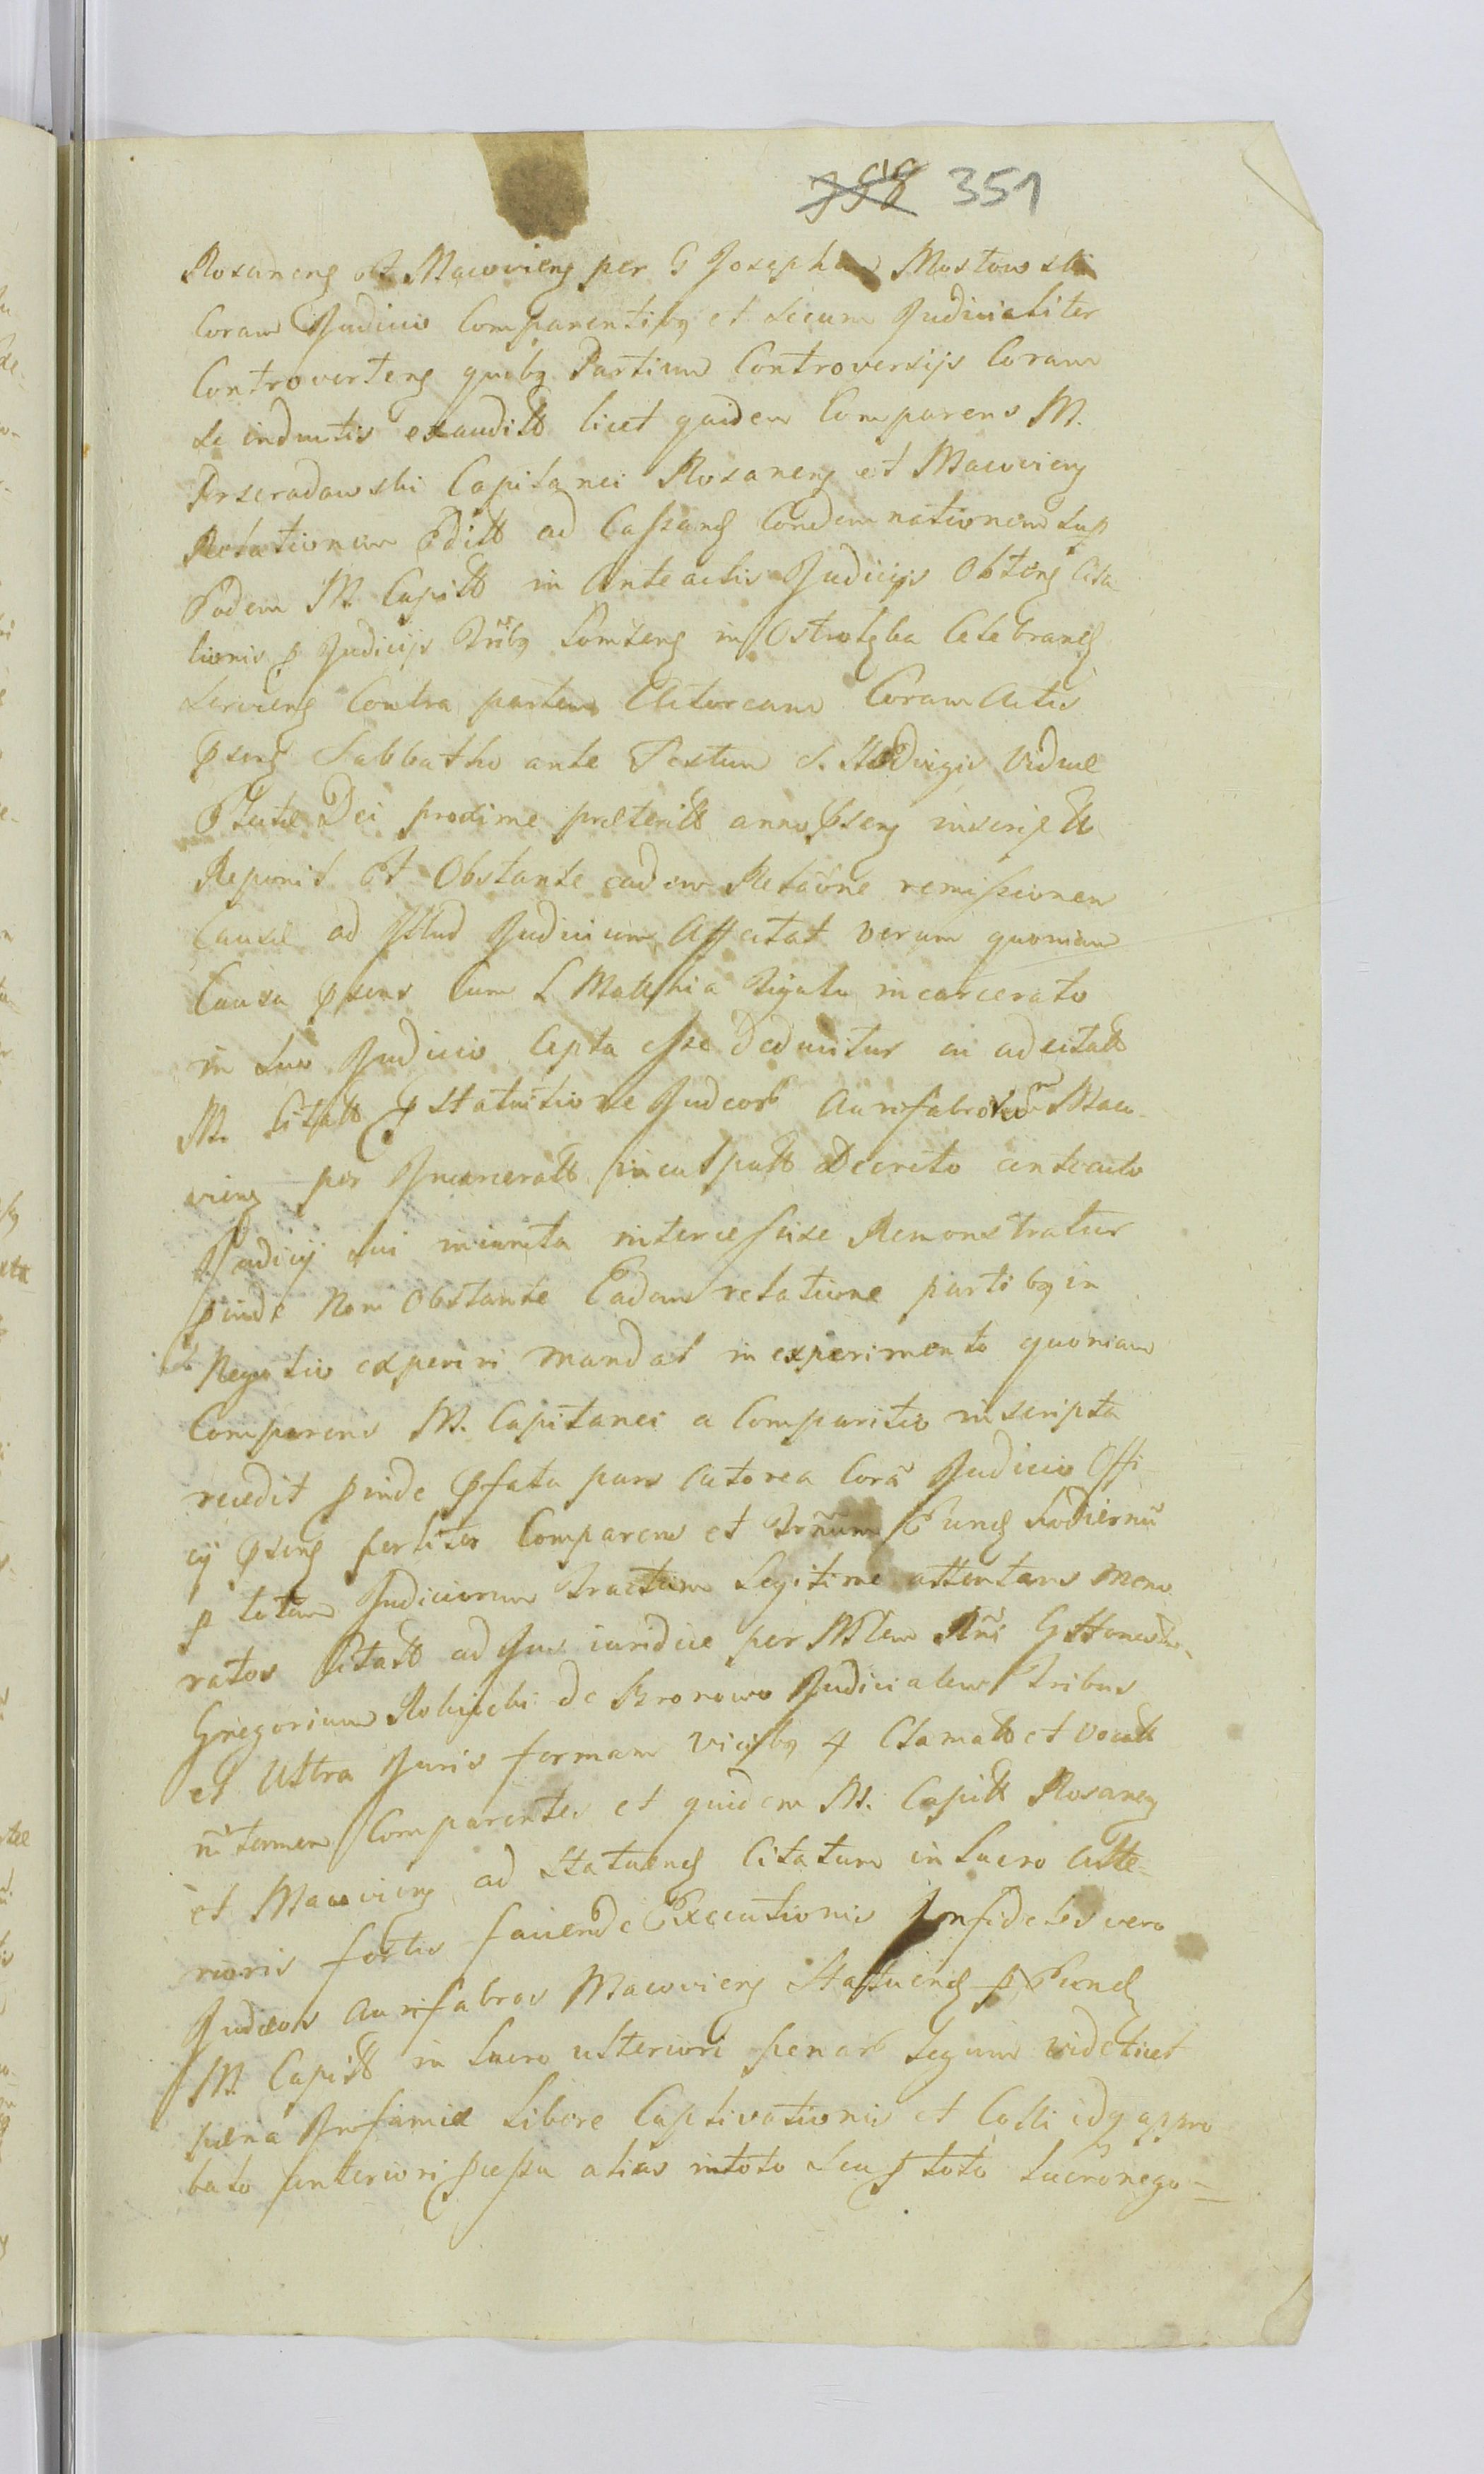 358 351
Rosaneng et Macovieng per G Josephum Mostowski
Coram Judicio Comparentibg et secum Judicialiter
Controverteng quibg Partium Controversijs Coram
se inductis exauditt licet quidem Comparens M.
Przeradowski Capitanei Rosaneng et Macovieng
Relationem Editt ad Cassang Condemnationem sup
Eodem M. Capitt in anteactis Judicijs Obteng
lionis p Judicijs Lomzeng in Ostrolęka Celebrang
servieng Contra partem Actoream Coram Actis
pseng Sabbatho ante Festum S. Hedvigis Viduæ
Electæ Dei proxime præteritt anno pseng inscriptt
Reponit Et Obstante eadem Relãone remissionem
Causæ ad Illud Judicium Affectat verum quoniam
Causa psens cum L Matthia Zigata incarcerato
in suo Judicio cepta esse deducitur in adcitatt
M. Citatt p statuitione Judeor Aurifabrorum Maco-
vieng per Incarceratt inculpatt Decreto anteacto
Judicij sui iniuncta intercessisse Remonstratur
pinde Non Obstante Eadem relatione partibg in
Negotio experiri mandat in experimento quoniam
Comparens M. Capitanei a Comparitio inscripta
recedit pinde pfata pars Actorea Corã Judicio Offi
cij pseng perliter Comparens et Trñum Eung hodiernũ
p totum Judiciorum Tractum Legitime attentans memo
ratos Citatt ad Jus iuridice per Mlem Rñi G Honestu
Gregorium Robyecki de Bronowo Judicialem Tribus
et Ultra Juris formam vicibg 4 Clamatt et vocatt
ñ tamen Comparentes et quidem M. Capitt Rosaneng
et Macovieng ad statueng Citatum in Lucro Ulte-
rioris fortis faciendæ Executionis Infideles vero
Judæos Aurifabros Macovieng Statueng p Eund
M. Capitt in Lucro ulteriori penar Legum videlicet
pæna Infamiæ Libere Captivationis et Colli idq appro
bato anteriori pcessu alias in toto seu p toto Lucro nego-